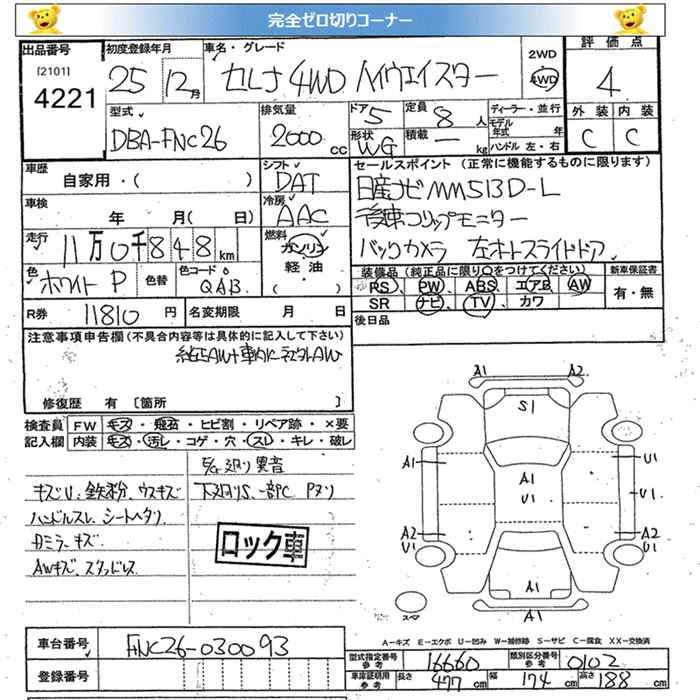 完全ゼロ切りコーナー
出品番号 初度登録年月 車名・グレード 評価点
[2101] 4221 25年 12月 セレナ 4WD ハイウェイスター 2WD 4WD 4
型式 排気量 ドア 5 定員 8人 ディーラー・並行 外装 内装
DBA-FNC26 2000cc 形状 WG 積載 ー kg モデル年式 年 ハンドル 左・右 C C
車歴 シフト セールスポイント (正常に機能するものに限ります)
自家用・( ) DAT 日産ナビ MM513D-L
車検 冷房 後席フリップモニター
年 月( 日) AAC バックカメラ 左オートスライドドア
走行 11万0千848km 燃料 ガソリン
色 ホワイトP 色替 色コード QAB 軽・油 ( )
装備品(純正品に限り○をつけてください) 新車保証書
PS PW ABS エアB AW 有・無
SR ナビ TV カワ
R券 11810円 名変期限 月 日 後日品
注意事項申告欄(不具合内容等は具体的に記入して下さい)
純正AW+車内に社外AW
修復歴 有 [箇所 ]
検査員 FW キズ・飛石・ヒビ割・リペア跡・×要
記入欄 内装 キズ・汚レ・コゲ・穴・スレ・キレ・破レ
廻り異音
キズU、鉄粉、ウスキズ 下廻りS、一部C Pヌリ
ハンドルスレ、シートヘタリ
ミラーキズ
AWキズ、スタッドレス
ロック車
A1 A2
S1
A1 A1 U1 U1
U1
A2 U1 A2 U1
A1
スペア A1
A-キズ E-エクボ U-凹み W-補修跡 S-サビ C-腐食 XX-交換済
車台番号 FNC26-030093
型式指定番号 参考 16660 類別区分番号 参考 0102
登録番号 車庫証明用 参考 長さ 477cm 幅 174cm 高さ 188cm